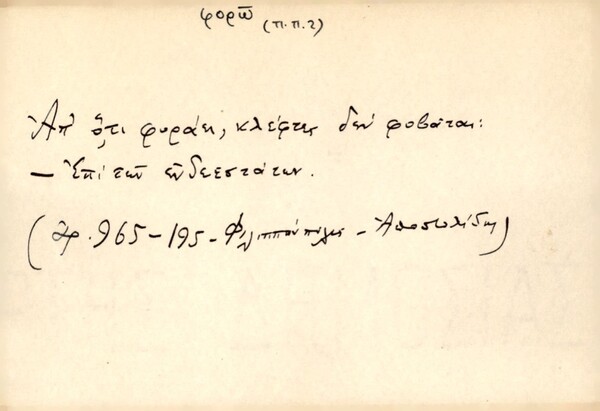 φορῶ (π.π.2)
Ἀπ' ὅ,τι φοράει, κλέφτες δέν φοβᾶται:
— Ἐπί τῶν ἐνδεεστάτων.
(ἀρ. 965-195-Φιλιππούπολις - Ἀποστολίδης)